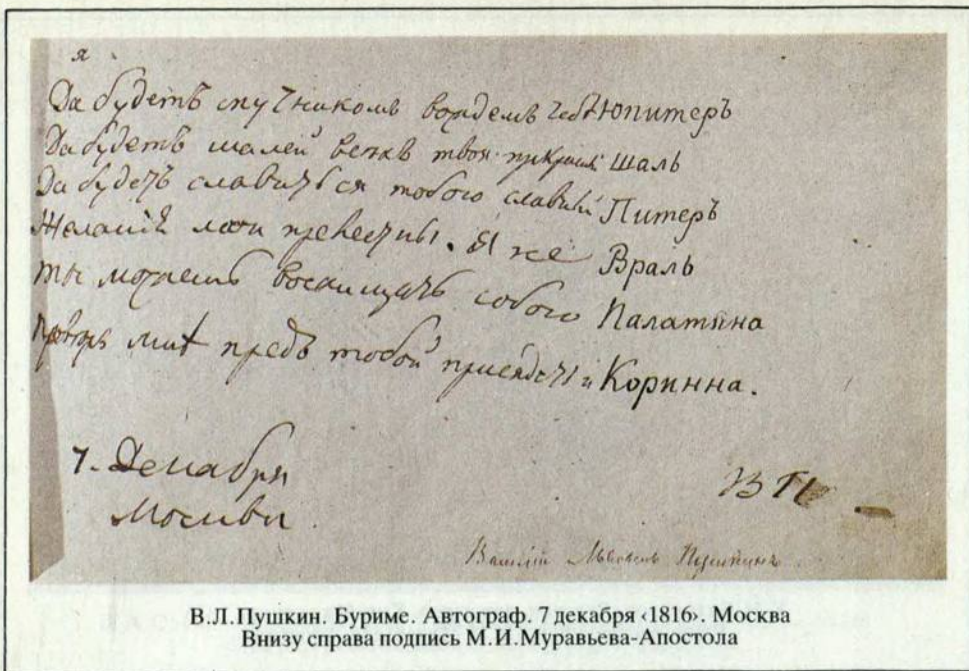 я
Да будетъ спутникомъ вождемъ тебѣ Юпитеръ
Да будетъ шалей всѣхъ твоя Шаль
Да будетъ славиться тобою славный Питеръ
Желанія мои прелестны. Я не Враль
Ты можешь восхищать собою Палатина
Повѣрь мнѣ предъ тобой присядетъ и Коринна.
7. Декабря
Москва
В П
Василій Львовичь Пушкинъ.
В.Л.Пушкин. Буриме. Автограф. 7 декабря ‹1816›. Москва
Внизу справа подпись М.И.Муравьева-Апостола